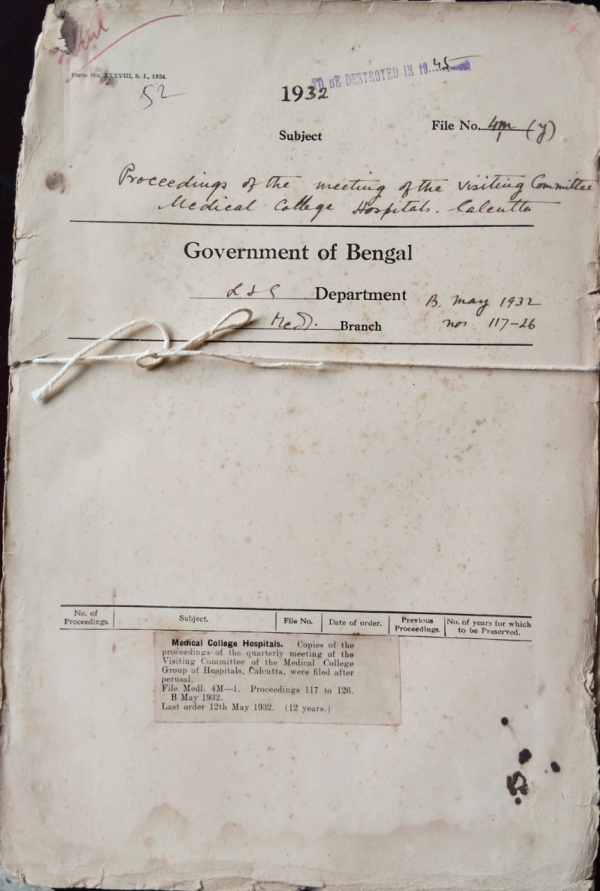 Form No. XXXVIII, S. I., 1924.
52
TO BE DESTROYED IN 1945
1932
File No. 4M/1 (y)
Subject
Proceedings of the meeting of the Visiting Committee
Medical College Hospitals. Calcutta
Government of Bengal
L S G Department
B. May 1932
Medl. Branch
nos. 117-26
No. of Proceedings.
Subject.
File No.
Date of order.
Previous Proceedings.
No. of years for which to be Preserved.
Medical College Hospitals. Copies of the
proceedings of the quarterly meeting of the
Visiting Committee of the Medical College
Group of Hospitals, Calcutta, were filed after
perusal.
File Medl. 4M—1. Proceedings 117 to 126.
B May 1932.
Last order 12th May 1932. (12 years.)